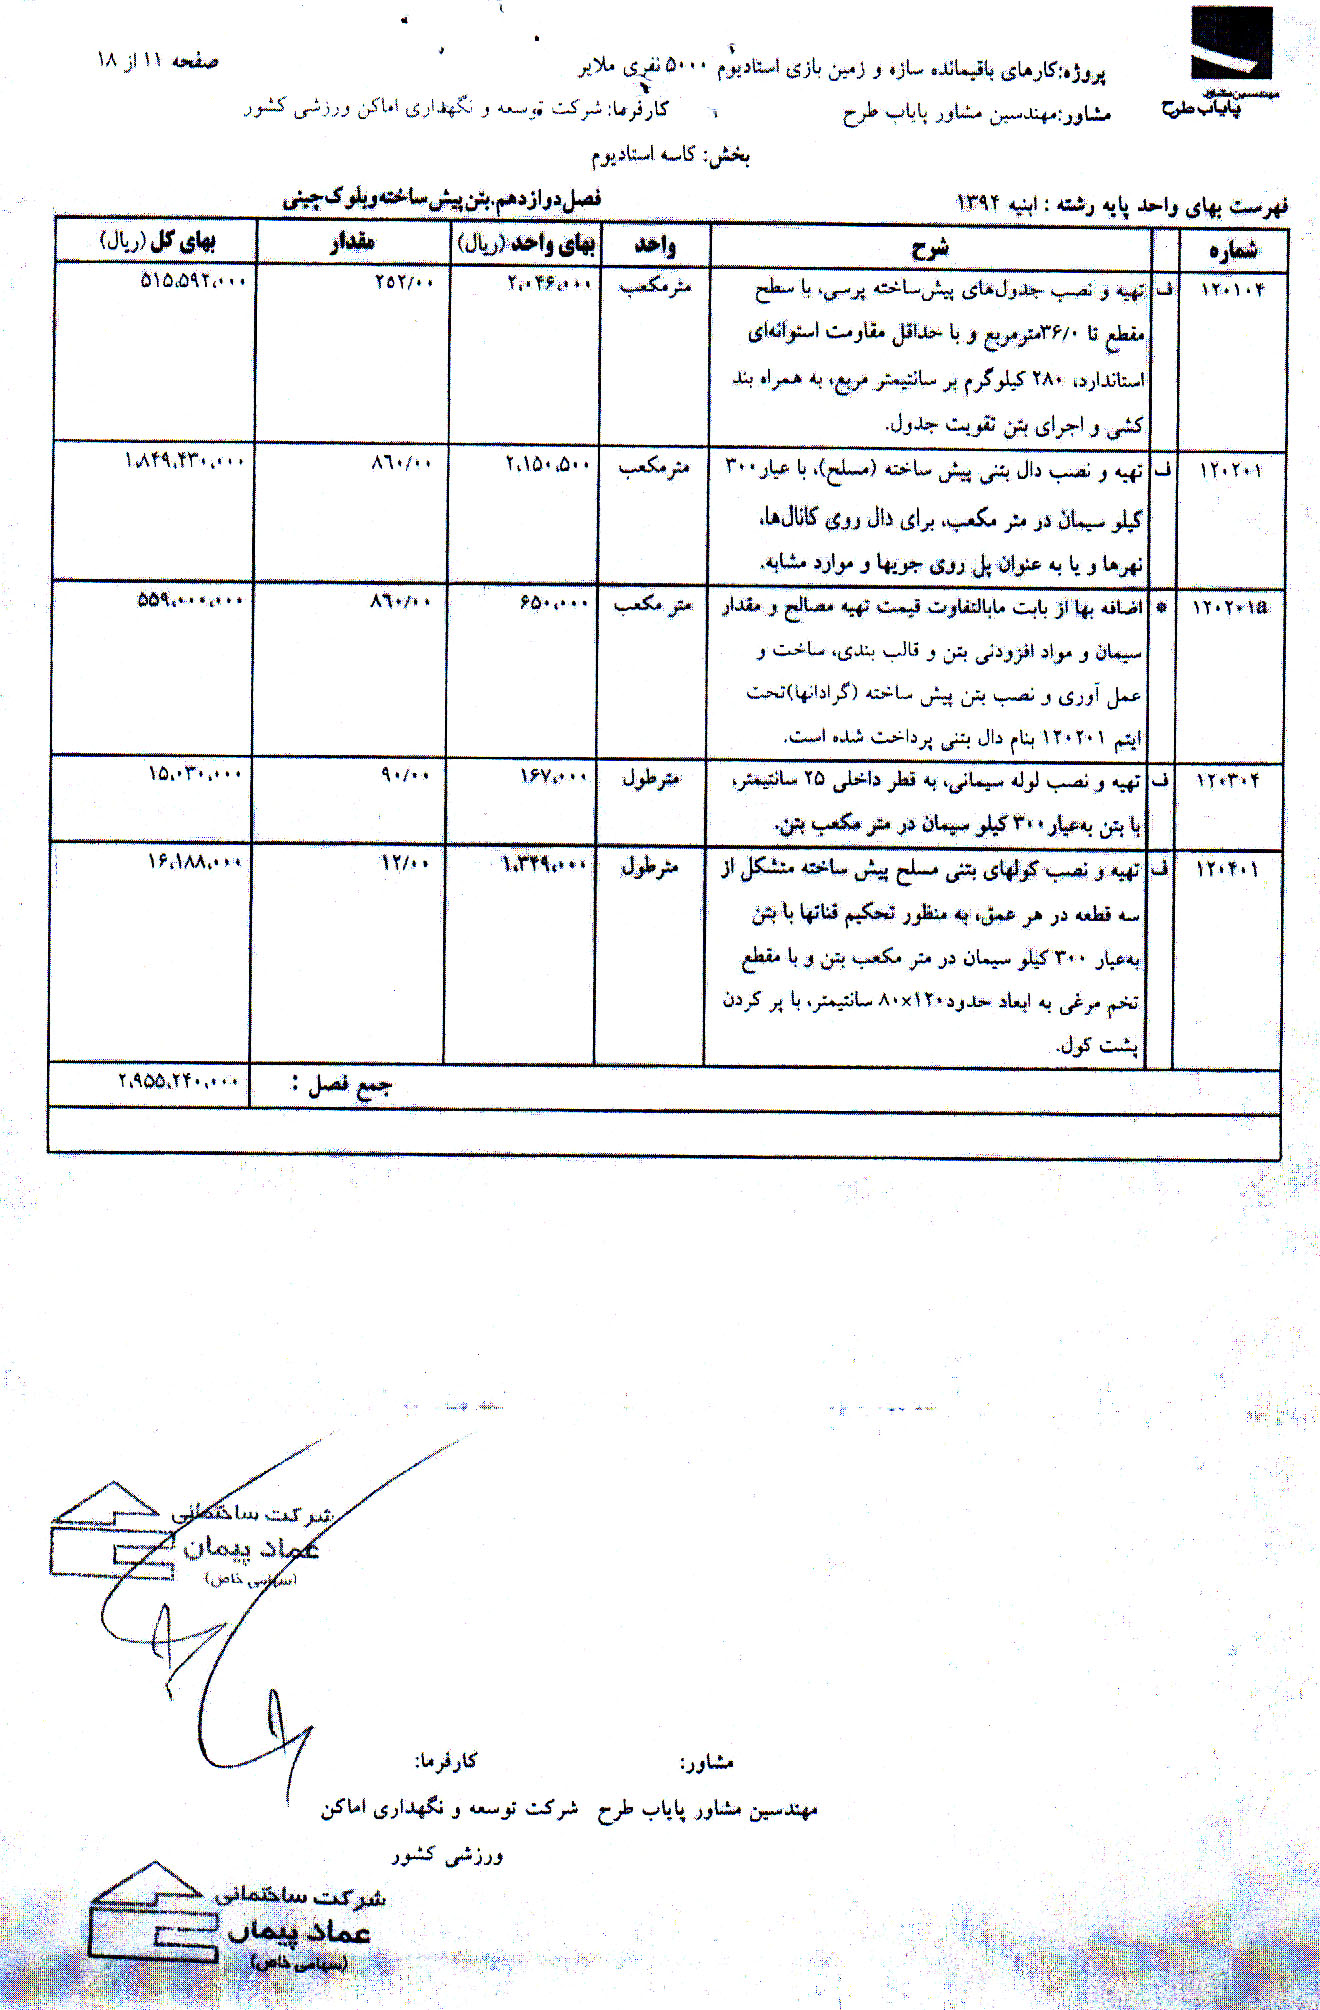 مهندسین مشاور
پایاب طرح
پروژه:کارهای باقیمانده سازه و زمین بازی استادیوم ۵۰۰۰ نفری ملایر
صفحه ۱۱ از ۱۸
مشاور:مهندسین مشاور پایاب طرح
کارفرما: شرکت توسعه و نگهداری اماکن ورزشی کشور
بخش: کاسه استادیوم
فهرست بهای واحد پایه رشته : ابنیه ۱۳۹۴
فصل دوازدهم.بتن پیش ساخته و بلوک چینی
شماره شرح واحد بهای واحد (ریال) مقدار بهای کل (ریال)
۱۲۰۱۰۴ ف تهیه و نصب جدول‌های پیش‌ساخته پرسی، با سطح مترمکعب ۲،۰۴۶،۰۰۰ ۲۵۲/۰۰ ۵۱۵،۵۹۲،۰۰۰
مقطع تا ۳۶/۰مترمربع و با حداقل مقاومت استوانه‌ای
استاندارد، ۲۸۰ کیلوگرم بر سانتیمتر مربع، به همراه بند
کشی و اجرای بتن تقویت جدول.
۱۲۰۲۰۱ ف تهیه و نصب دال بتنی پیش ساخته (مسلح)، با عیار۳۰۰ مترمکعب ۲،۱۵۰،۵۰۰ ۸۶۰/۰۰ ۱،۸۴۹،۴۳۰،۰۰۰
کیلو سیمان در متر مکعب، برای دال روی کانال‌ها،
نهرها و یا به عنوان پل روی جویها و موارد مشابه.
۱۲۰۲۰۱a * اضافه بها از بابت مابالتفاوت قیمت تهیه مصالح و مقدار متر مکعب ۶۵۰،۰۰۰ ۸۶۰/۰۰ ۵۵۹،۰۰۰،۰۰۰
سیمان و مواد افزودنی بتن و قالب بندی، ساخت و
عمل آوری و نصب بتن پیش ساخته (گرادانها)تحت
ایتم ۱۲۰۲۰۱ بنام دال بتنی پرداخت شده است.
۱۲۰۳۰۴ ف تهیه و نصب لوله سیمانی، به قطر داخلی ۲۵ سانتیمتر، مترطول ۱۶۷،۰۰۰ ۹۰/۰۰ ۱۵،۰۳۰،۰۰۰
با بتن به‌عیار۳۰۰ کیلو سیمان در متر مکعب بتن.
۱۲۰۴۰۱ ف تهیه و نصب کولهای بتنی مسلح پیش ساخته متشکل از مترطول ۱،۳۴۹،۰۰۰ ۱۲/۰۰ ۱۶،۱۸۸،۰۰۰
سه قطعه در هر عمق، به منظور تحکیم قناتها با بتن
به‌عیار ۳۰۰ کیلو سیمان در متر مکعب بتن و با مقطع
تخم مرغی به ابعاد حدود۱۲۰×۸۰ سانتیمتر، با پر کردن
پشت کول.
جمع فصل : ۲،۹۵۵،۲۴۰،۰۰۰
شرکت ساختمانی
عماد پیمان
(سهامی خاص)
مشاور: کارفرما:
مهندسین مشاور پایاب طرح شرکت توسعه و نگهداری اماکن
ورزشی کشور
شرکت ساختمانی
عماد پیمان
(سهامی خاص)